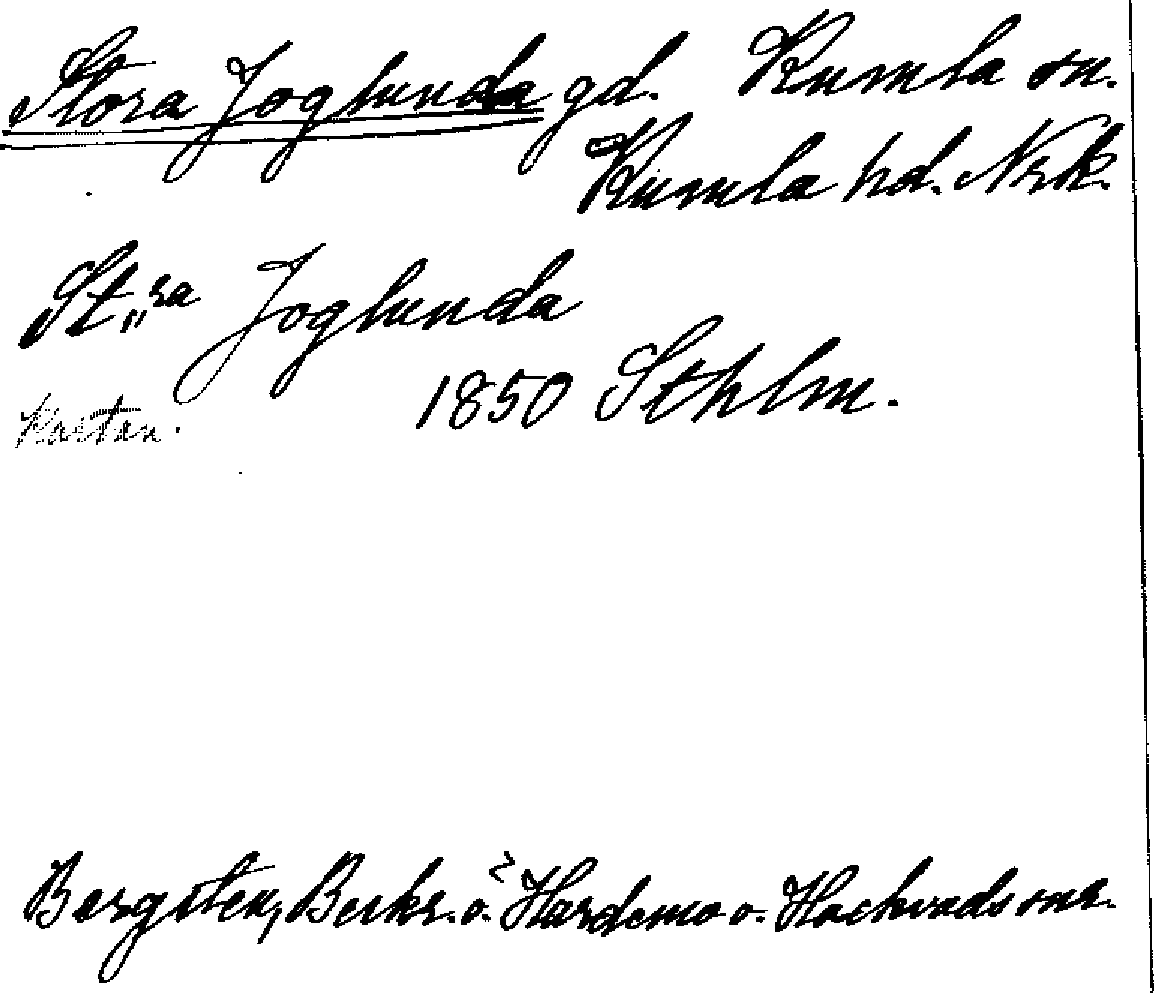 Stora Joglunda gd. Kumla sn.
Kumla hd. Nrk.
St"ra Joglunda
1850 Sthlm.
Kartan.
Bergsten, Beskr. ö. Hardemo o. Hackvads snr.